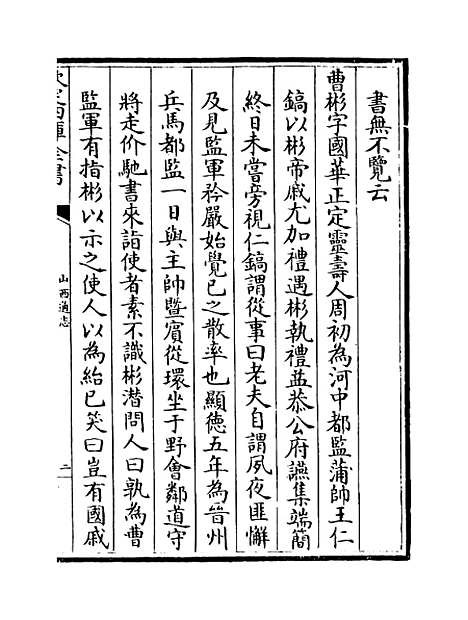 書無不覽云
曹彬字國華正定靈壽人周初為河中都監蒲帥王仁
鎬以彬帝戚尤加禮遇彬執禮益恭公府讌集端簡
終日未嘗旁視仁鎬謂從事曰老夫自謂夙夜匪懈
及見監軍矜嚴始覺已之散率也顯徳五年為晉州
兵馬都監一日與主帥暨賓從環坐于野會鄰道守
將走价馳書來詣使者素不識彬潜問人曰孰為曹
監軍有指彬以示之使人以為紿已笑曰豈有國戚
山西通志
二